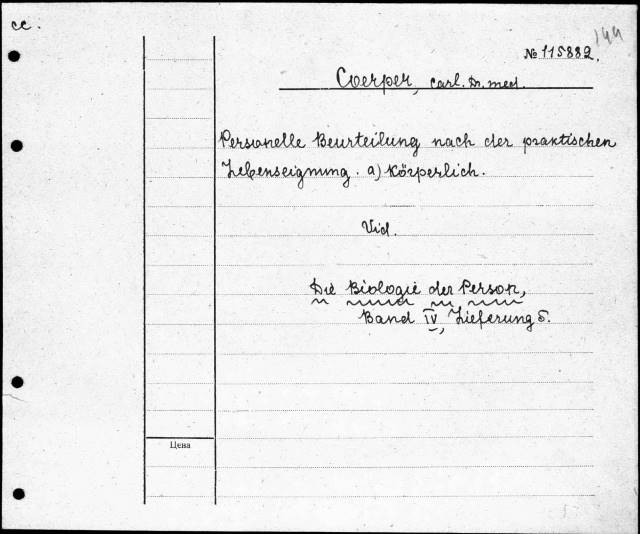 cc.
144
№ 115882.
Coerper, Carl. Dr. med.
Personelle Beurteilung nach der praktischen
Lebenseignung. a) Körperlich.
Vid.
Die Biologie der Person,
Band IV, Lieferung 5.
Цена